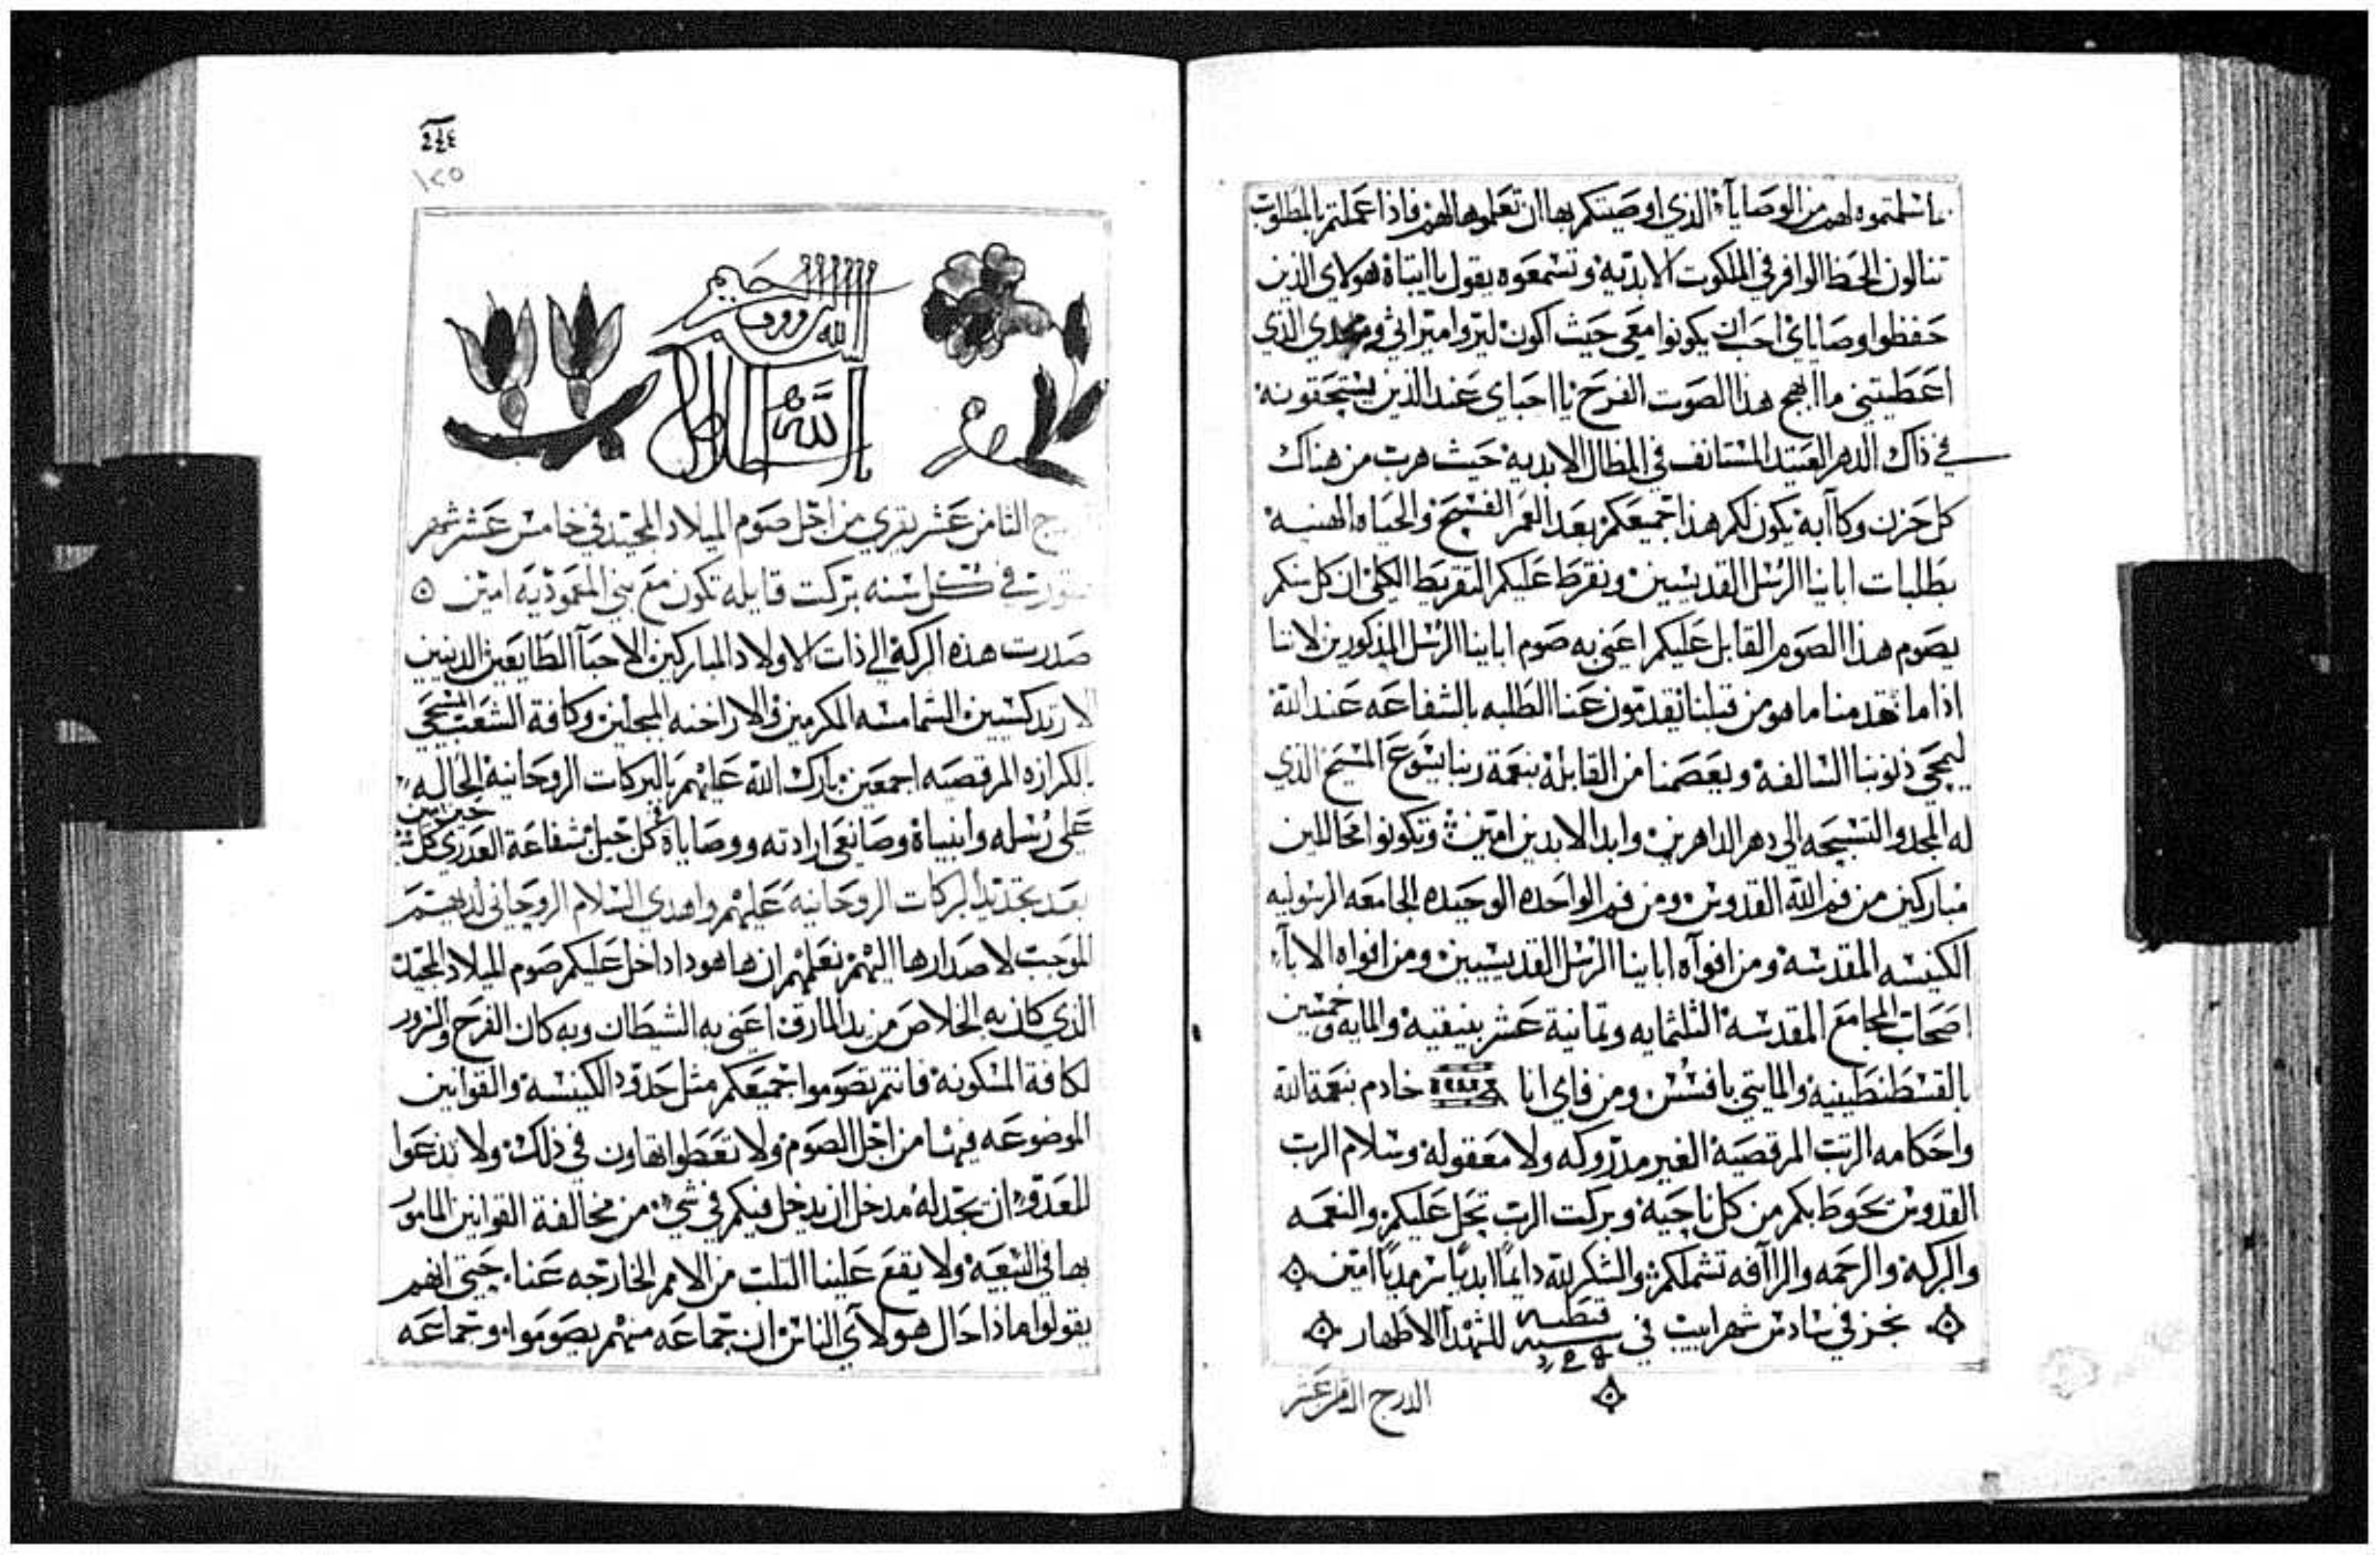 ما سلمتموه لهم من الوصاياء الذي اوصيتكم بها ان تعلموها لهم فاذا عملتم بالمطلوب
تنالون الحظ الوافر في الملكوت الابديه وتسمعوه يقول يا ابتاه هولاي الذين
حفظوا وصاياي احب ان يكونوا معي حيث اكون ليروا ميراثي ومجدي الذي
اعطيتني ما ابهج هذا الصوت الفرح يا احباي عند الذين يستحقونه
في ذاك الدهر العتيد المستانف في المظال الابديه حيث هرب من هناك
كل حزن وكاآبه يكون لكم هذا جميعكم بعد العمر الفسيح والحياه الهنيه
بطلبات اباينا الرسل القديسين ونقرط عليكم التقريط الكلي ان كل منكم
يصوم هذا الصوم القابل عليكم اعني به صوم اباينا الرسل المذكورين لاننا
اذا ما قدمنا ما هو من قبلنا يقدمون عنا الطلبه بالشفاعه عند الله
ليمحي ذنوبنا السالفه ويعصمنا من القابله بنعمة ربنا يسوع المسيح الذي
له المجد والتسبيحه الي دهر الداهرين وابد الابدين امين وتكونوا محاللين
مباركين من فم الله القدوس ومن فم الواحده الوحيده الجامعه الرسوليه
الكنيسه المقدسه ومن افوآه اباينا الرسل القديسيين ومن افواه الاباء
اصحاب المجامع المقدسه الثلثمايه وثمانية عشر بنيقيه والمايه وخمسين
بالقسطنطينيه والمايتي بافسس ومن فاي انا خادم بنعمة الله
واحكامه الرتب المرقصيه الغير مدروكه ولا معقوله وسلام الرب
القدوس تحوط بكم من كل ناحيه وبركت الرب تحل عليكم والنعمه
والبركه والرحمه والراآفه تشملكم والشكر لله دايمًا ابديًا سرمديًا امين
نجز في سادس شهر ابيب في سنه قبطيه للشهدا الاطهار
الدرج الثامن عشر
١٢٥
بسم الله الرووف الرحيم
الدرج الثامن عشر يقري من اجل صوم الميلاد المجيد في خامس عشر شهر
هتور في كل سنه بركت قايله تكون مع بني المعموديه امين
صدرت هذه البركه الي ذات الاولاد المباركين الاحبآ الطايعين الدينين
الارتدكسيين الشمامسه المكرمين والاراخنه المبجلين وكافة الشعب المسيحي
بالكرازه المرقصيه اجمعين بارك الله عليهم بالبركات الروحانيه الحاله
علي رسله وانبياه وصانعي ارادته ووصاياه كل جيل بشفاعة العدري كل حين امين
بعد تجديد البركات الروحانيه عليهم واهدي السلام الروحاني لديهم
الموجب لاصدارها اليهم نعلمهم ان ها هوذا داخل عليكم صوم الميلاد المجيد
الذي كان به الخلاص من يد المارق اعني به الشيطان وبه كان الفرح والسرور
لكافة المسكونه فانتم تصوموا جميعكم مثل حدود الكنيسه والقوانين
الموضوعه فيها من اجل الصوم ولا تعطوا تهاون في ذلك ولا تدعوا
للعدو ان يجد له مدخل ان يدخل فيكم في شي من مخالفة القوانين المامور
بها في البيعه ولا يقع علينا التلب من الامم الخارجه عنا حتي انهم
يقولوا ماذا حال هولآي الناس ان جماعه منهم يصوموا وجماعه